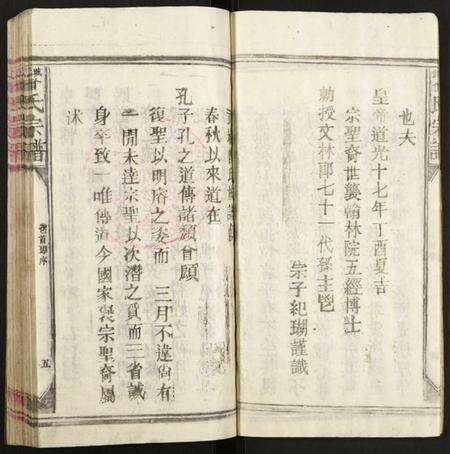 也夫
皇帝道光十七年丁酉夏吉
宗聖裔世襲翰林院五經博士
勅授文林郎七十一代孫主鬯
宗子紀瑚謹識
春秋以來道在
孔子孔之道傳諸顏曾顧
復聖以明睿之姿而三月不違尚有
一間未達宗聖以次潛之質而三省誠
身卒致一唯傳 今國家褒宗聖裔屬
沭
氏宗譜
卷首舊序
五